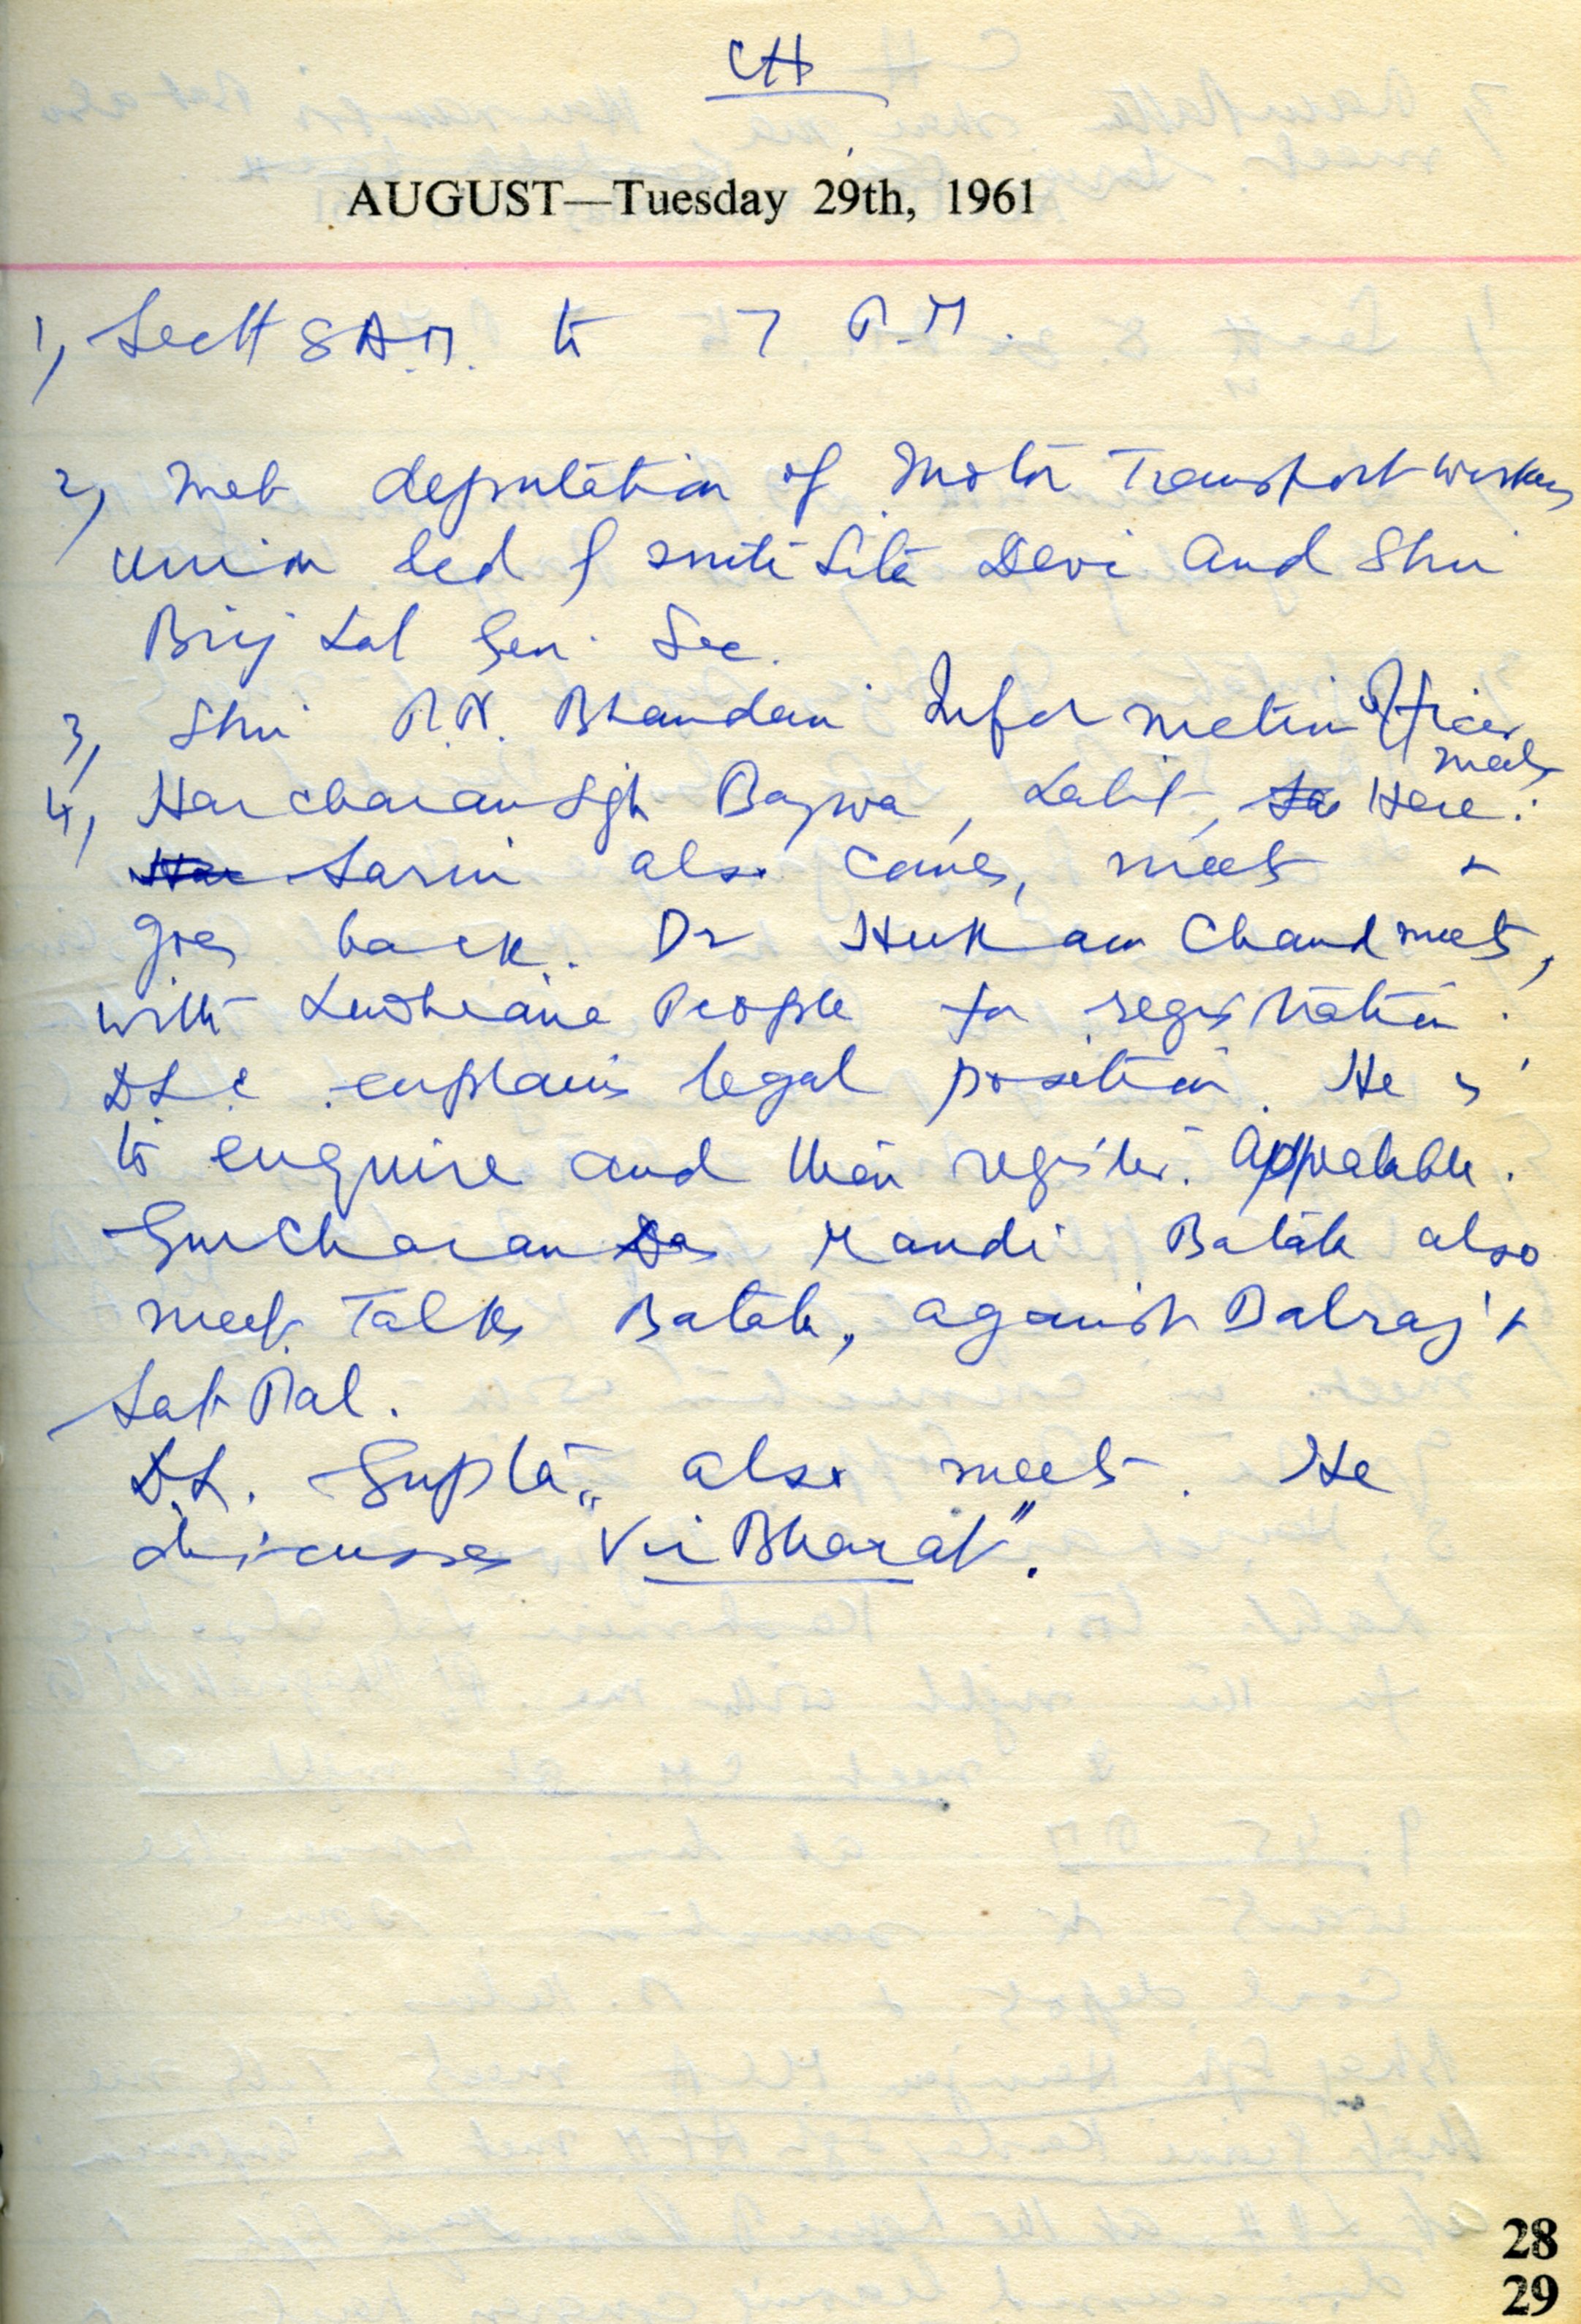 CH
AUGUST—Tuesday 29th, 1961
1, Sectt 8 A.M. to 7 P.M.
2, Met deputation of Motor Transport Workers
Union led of Smti Sita Devi and Shri
Brij Lal Gen. Sec.
3, Shri P.N. Bhandari Information Officer
meets
4, Harcharan Sgh Bajwa, Lalit, Here.
Sarin also comes, meets +
goes back. Dr Hukam Chand meets,
with Ludhiana People for registration.
D.L.C explains legal position. He is
to enquire and then register. Appealable.
Gurcharan Das Mandi Batala also
meet. Talks Batala, against Balraj +
Sat Pal.
D.L. Gupta also meets. He
discusses "Vir Bharat".
28
29